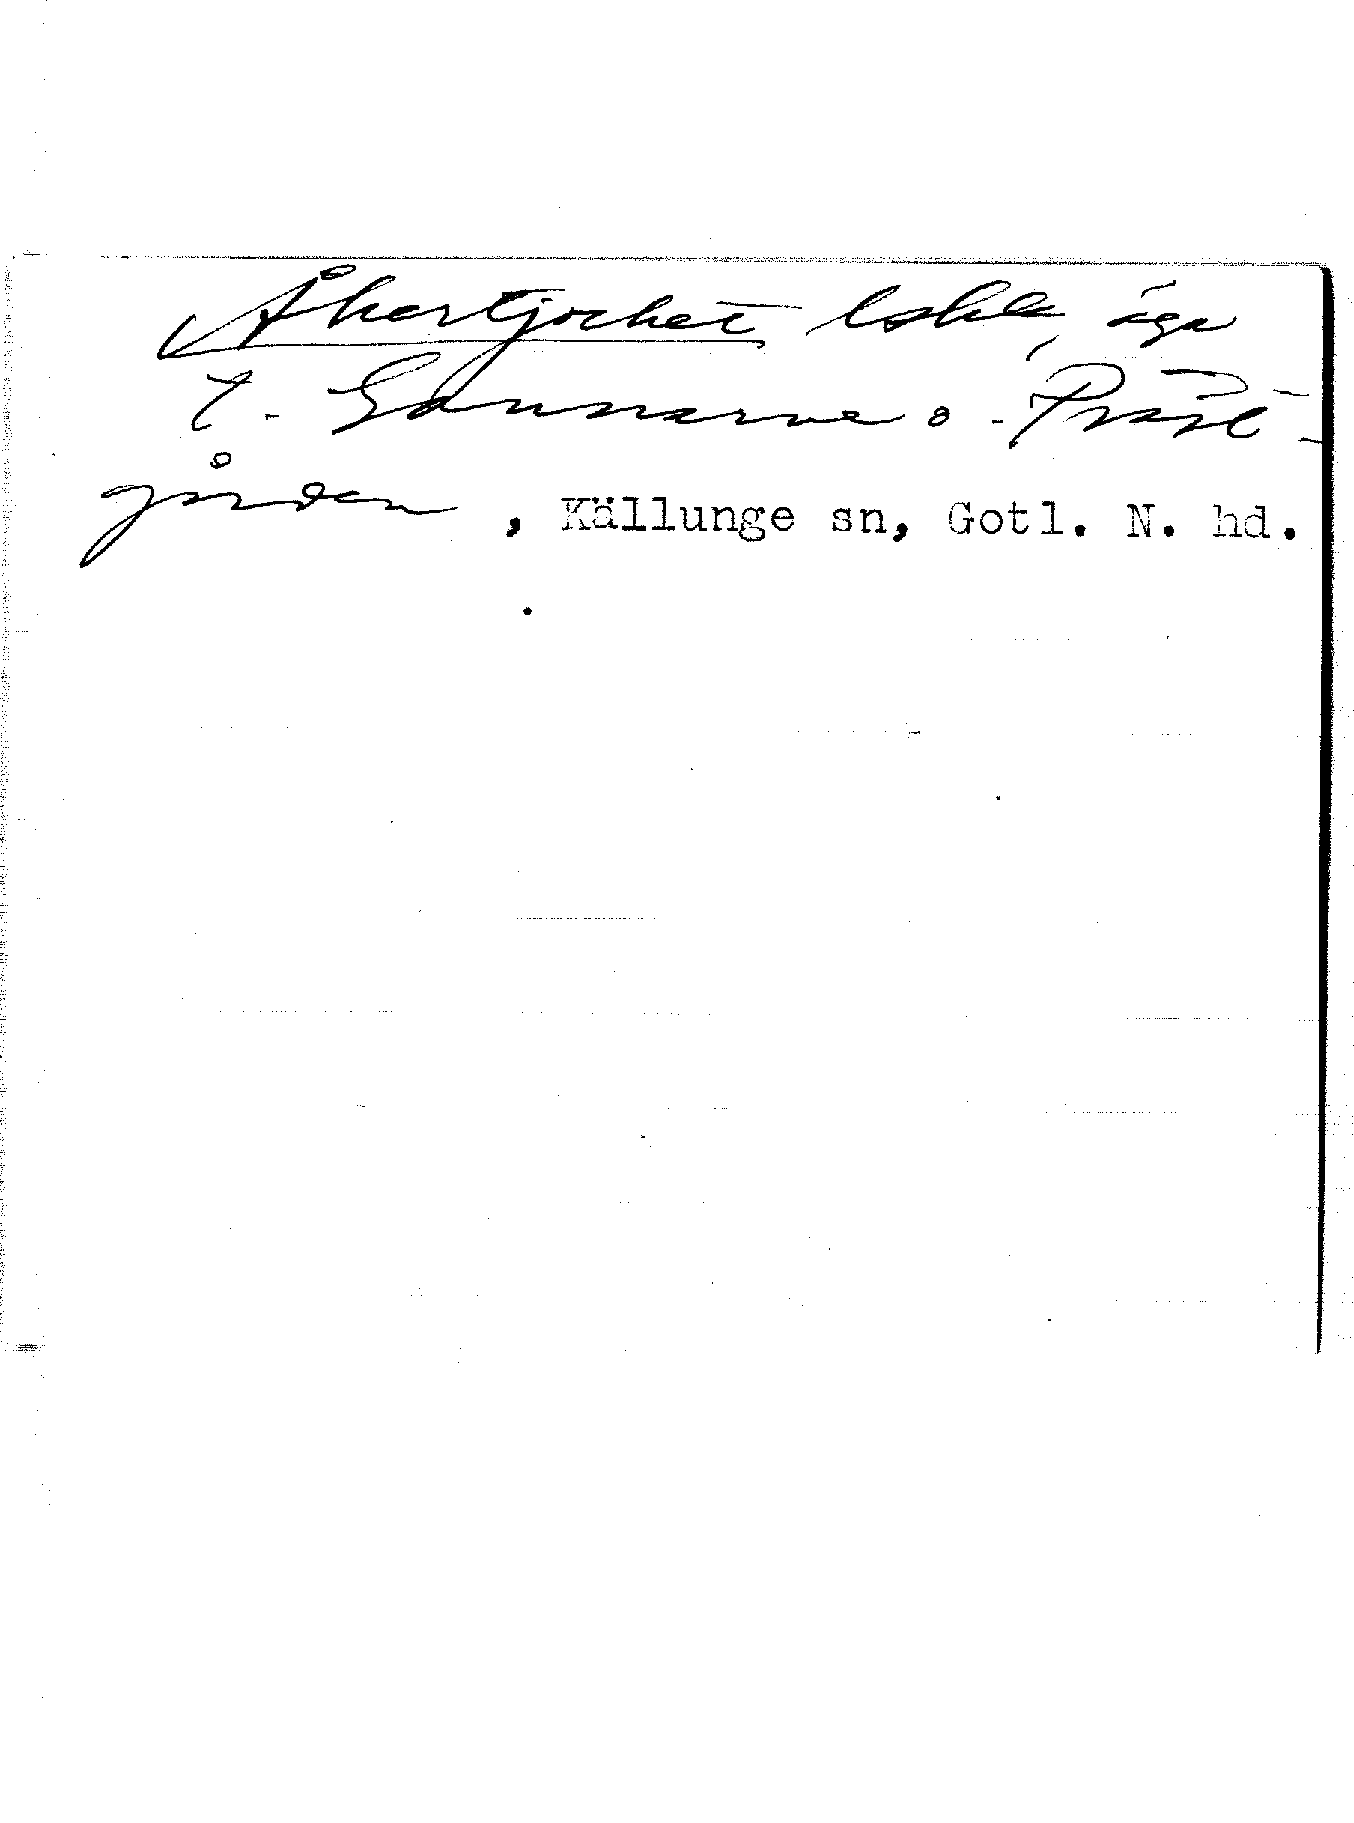 Åkerstjocket lokal, äga
t. Gannarve o. Präst-
gården, Källunge sn, Gotl. N. hd.